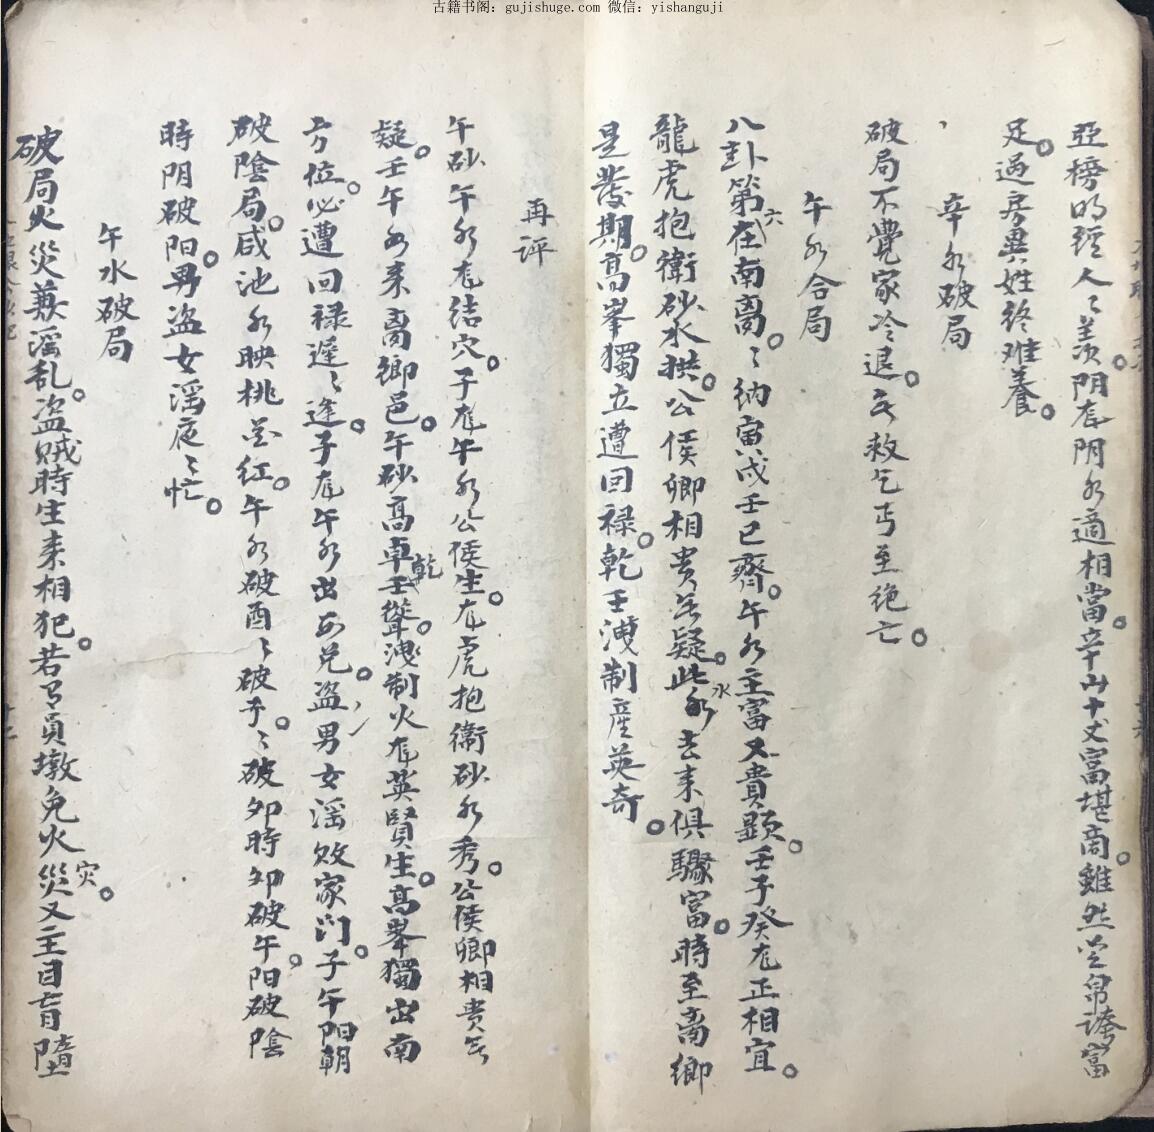 古籍书阁：gujishuge.com 微信：yishanguji
亞榜明經人々羡。阴龙阴水適相當。辛山十丈富堪商。雖然芒帛誇富
足。過房異姓终难養。
辛水破局
破局不覺家冷退。衣救乞丐至绝亡。
午水合局
八卦第六在南离。々納寅戌壬已齊。午水主富又貴顯。壬子癸龙正相宜。
龍虎抱衛砂水拱。公侯卿相贵無疑。此水去来俱驟富。時至离鄉
是發期。高峯獨立遭回禄。乾壬洩制産英奇。
再评
午砂午水龙结穴。子龙午水公侯生。龙虎抱衛砂水秀。公侯卿相贵無
疑。壬午水来离鄉邑。午砂高卓乾壬聳。洩制火龙英賢生。高峯獨出南
方位。必遭回禄遲々逢。子龙午水出西兑。盗男女淫败家门。子午阳朝
破陰局。咸池水映桃花红。午水破酉々破子。々破夘時夘破午。阳破陰
時阴破阳。男盗女淫夜々忙。
午水破局
破局火災蒹淫乱。盗贼時生来相犯。若有員墩免火災灾。又主目盲墮